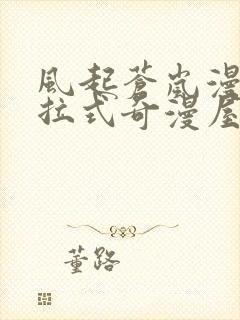 風起蒼嵐漫
拉式奇漫屋
董路